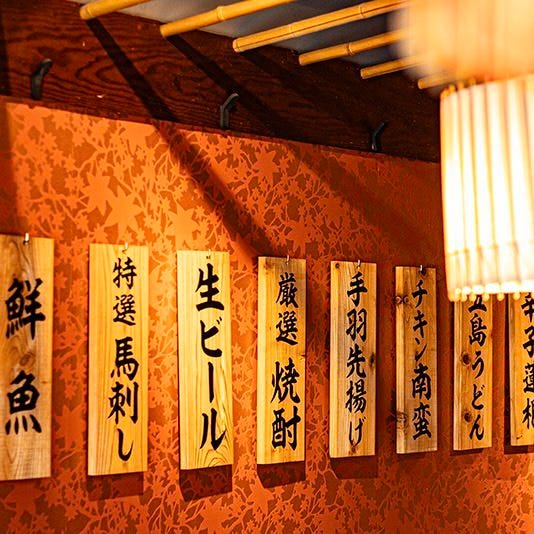 鮮魚
特選 馬刺し
生ビール
厳選 焼酎
手羽先揚げ
チキン南蛮
五島うどん
辛子蓮根